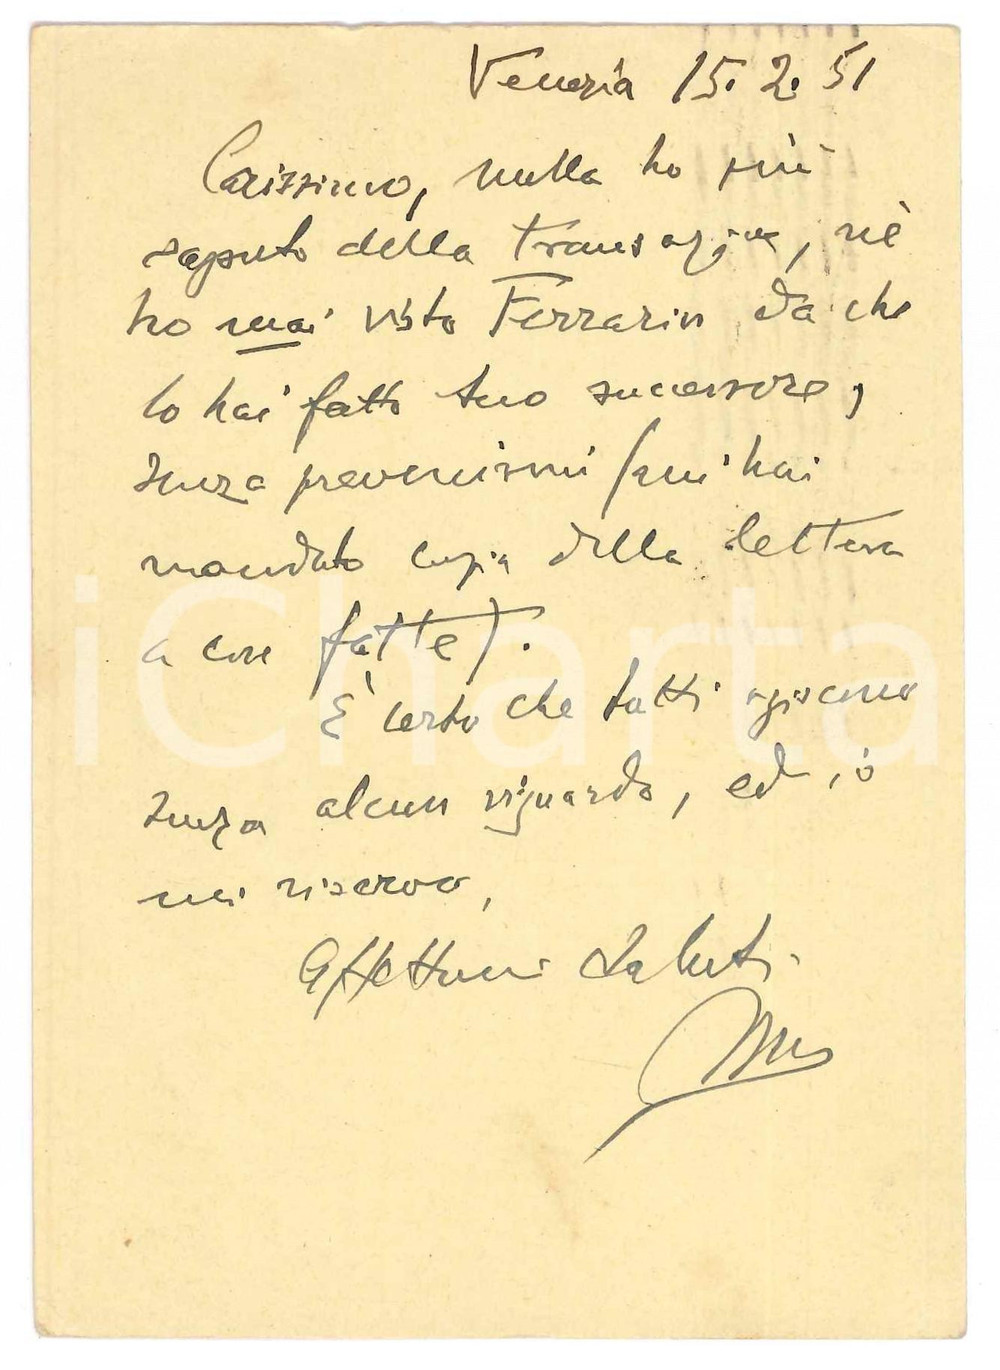 Venezia 15. 2. 51
Carissimo, nulla ho più
saputo della transazione, nè
ho mai visto Ferrarin da che
lo hai fatto tuo successore,
senza prevenirmi (mi hai
mandato copia della lettera
a cose fatte).
È certo che tutti agiscono
senza alcun riguardo, ed io
mi riservo,
Affettuosi saluti.
iCharta